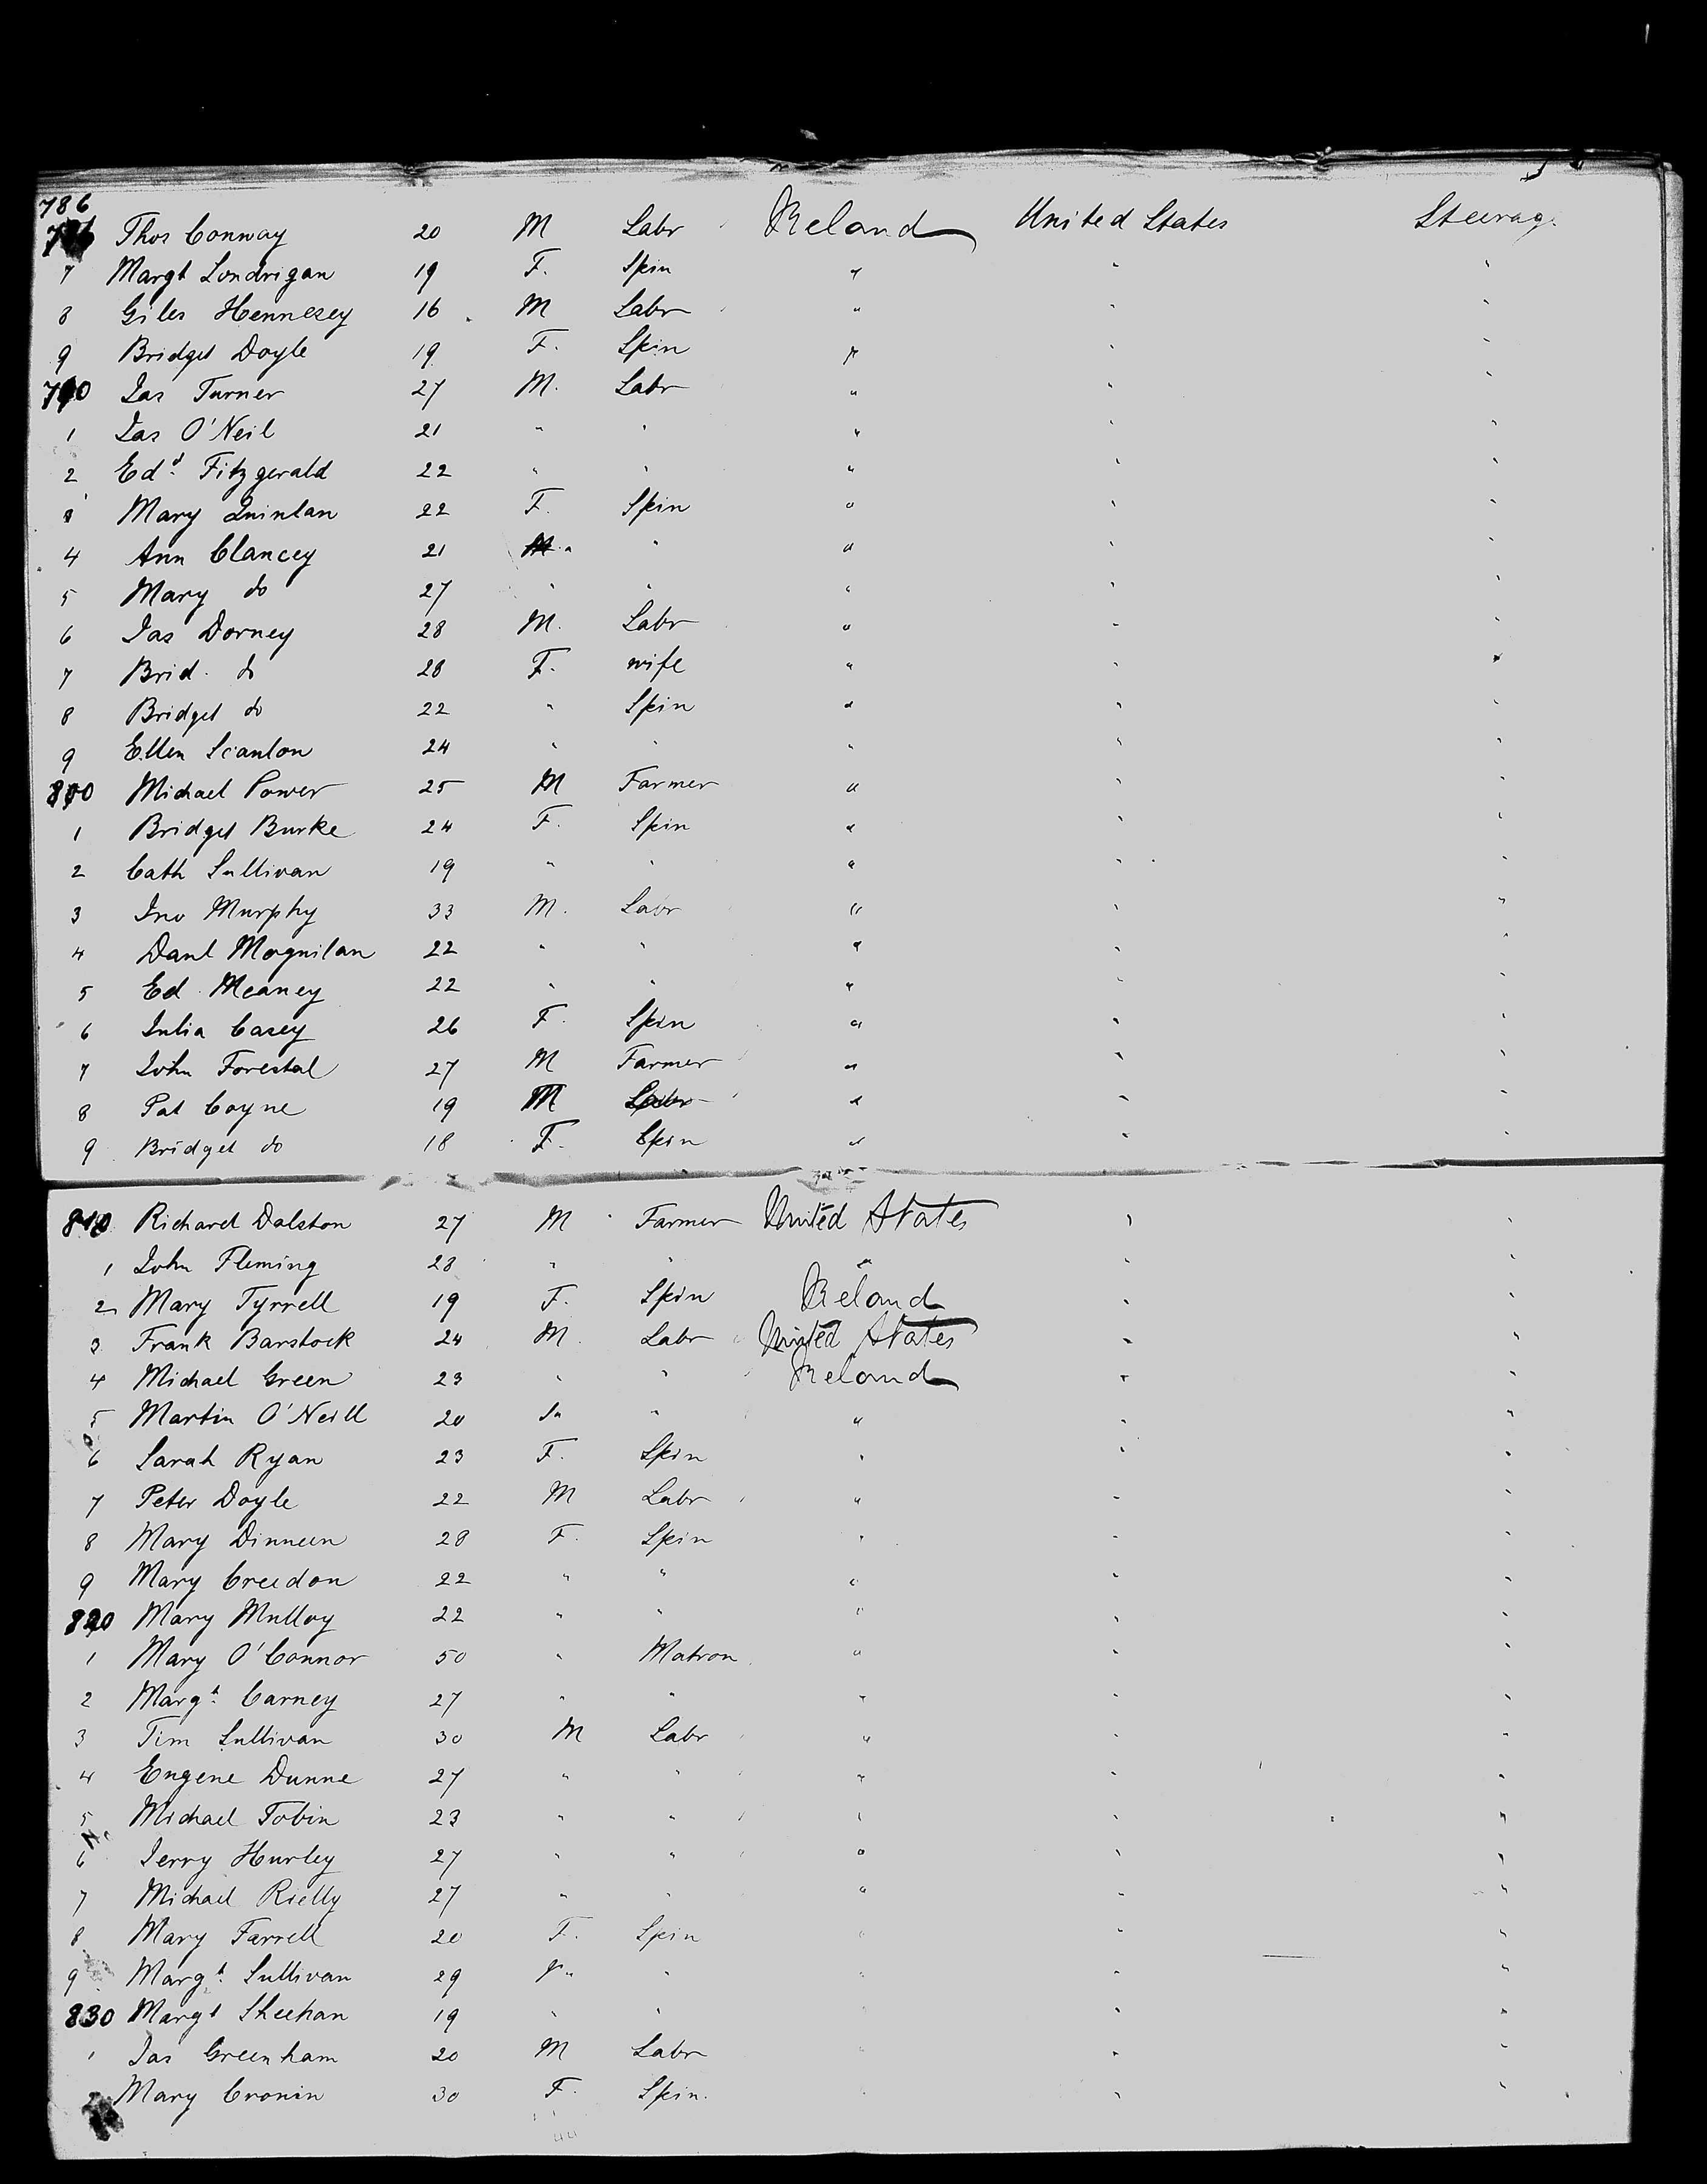 786
Thos Conway 20 M Labr Ireland United States Steerage
7 Margt Londrigan 19 F. Spin " " "
8 Giles Hennesey 16 M Labr " " "
9 Bridget Doyle 19 F. Spin " " "
790 Jas Turner 27 M. Labr " " "
1 Jas O'Neil 21 " " " " "
2 Edd. Fitzgerald 22 " " " " "
3 Mary Quinlan 22 F. Spin " " "
4 Ann Clancey 21 " " " " "
5 Mary do 27 " " " " "
6 Jas Dorney 28 M. Labr " " "
7 Brid. do 28 F. wife " " "
8 Bridget do 22 " Spin " " "
9 Ellen Scanlon 24 " " " " "
800 Michael Power 25 M Farmer " " "
1 Bridget Burke 24 F. Spin " " "
2 Cath Sullivan 19 " " " " "
3 Jno Murphy 33 M. Labr " " "
4 Danl Moynilan 22 " " " " "
5 Ed. Meaney 22 " " " " "
6 Julia Casey 26 F. Spin " " "
7 John Forestal 27 M Farmer " " "
8 Pat Coyne 19 M Labr " " "
9 Bridget do 18 F. Spin " " "
810 Richard Dalston 27 M Farmer United States " "
1 John Fleming 28 " " " " "
2 Mary Tyrrell 19 F. Spin Ireland " "
3 Frank Barstock 24 M. Labr United States " "
4 Michael Green 23 " " Ireland " "
5 Martin O'Neill 20 " " " " "
6 Sarah Ryan 23 F. Spin " " "
7 Peter Doyle 22 M Labr " " "
8 Mary Dinneen 28 F. Spin " " "
9 Mary Creedon 22 " " " " "
820 Mary Mulloy 22 " " " " "
1 Mary O'Connor 50 " Matron " " "
2 Margt. Carney 27 " " " " "
3 Tim Sullivan 30 M Labr " " "
4 Eugene Dunne 27 " " " " "
5 Michael Tobin 23 " " " " "
6 Jerry Hurley 27 " " " " "
7 Michael Rielly 27 " " " " "
8 Mary Farrell 20 F. Spin " " "
9 Margt. Sullivan 29 " " " " "
830 Margt Sheehan 19 " " " " "
1 Jas Greenham 20 M Labr " " "
2 Mary Cronin 30 F. Spin. " " "